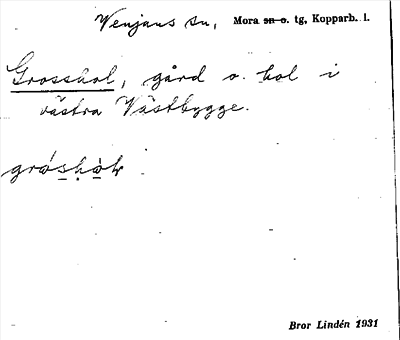 Venjans sn, Mora sn o. tg, Kopparb. l.
Grosshol, gård o. hol i
västra Västbygge.
Bror Lindén 1931